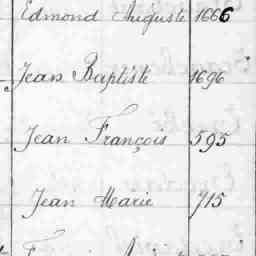 Edmond Auguste 1666
Jean Baptiste 1696
Jean François 595
Jean Marie 715